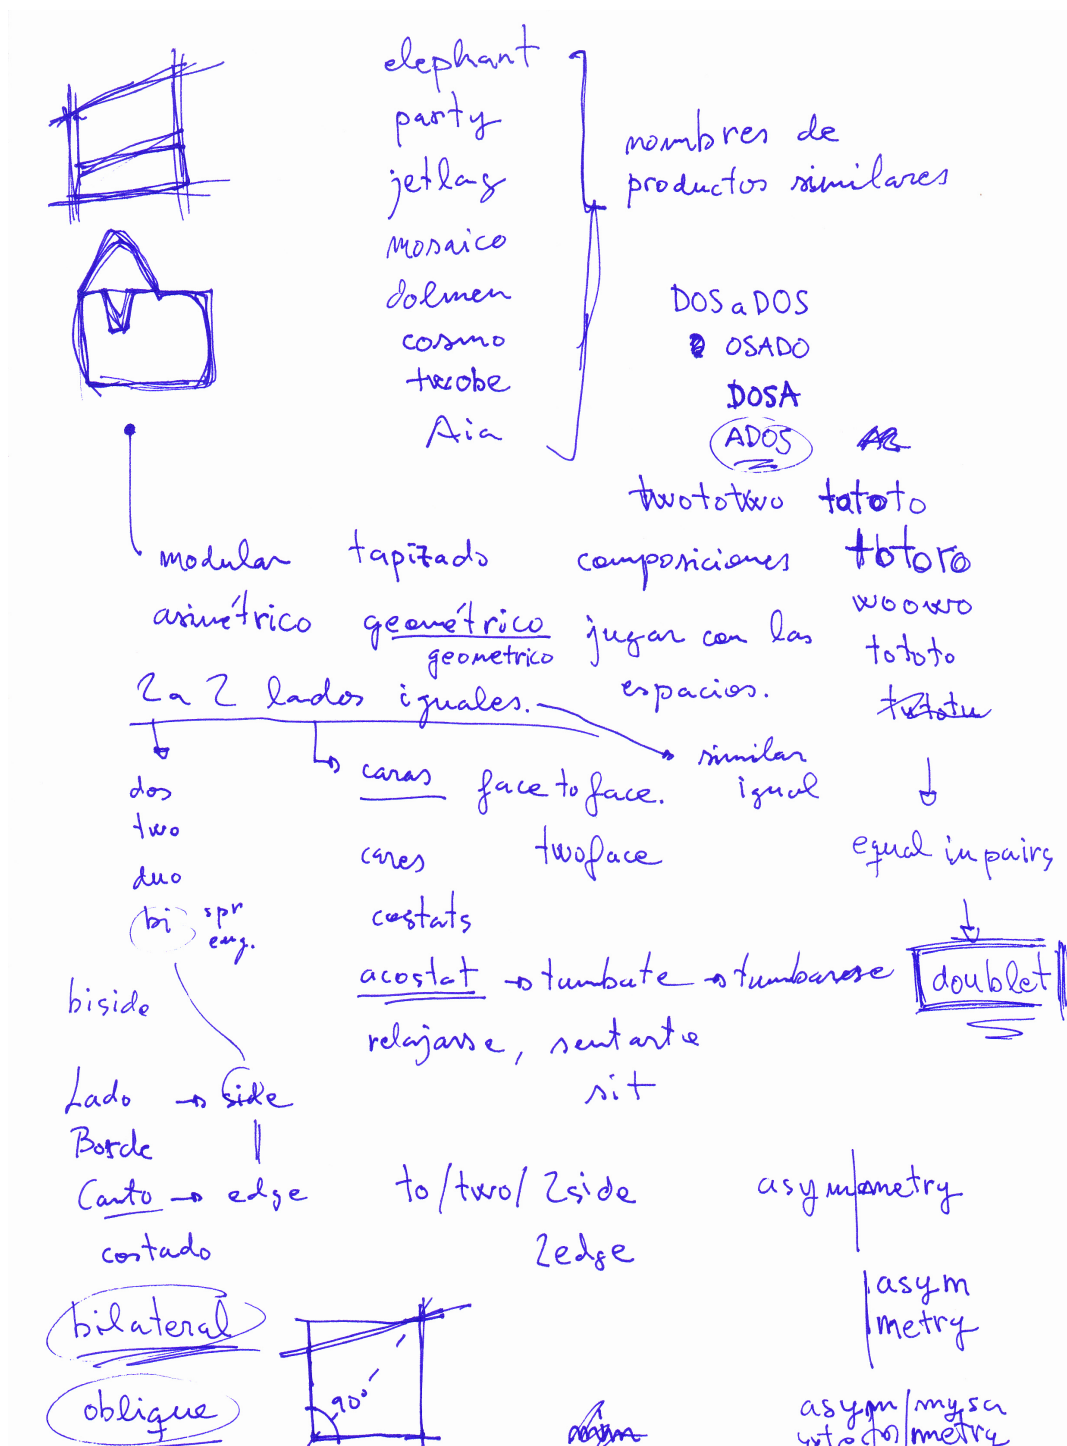 elephant
party
jetlag
mosaico
dolmen
cosmo
twobe
Aia
nombres de
productos similares
DOS a DOS
OSADO
DOSA
ADOS
twototwo tatoto
totoro
woowo
tototo
modular tapizado composiciones
asimétrico geométrico jugar con las
geometrico espacios.
2 a 2 lados iguales.
similar
igual
dos
two
duo
bi spr
eng.
caras face to face.
cares twoface
costats
acostat → tumbate → tumbarse
relajarse, sentarte
sit
equal in pairs
doublet
biside
Lado → side
Borde
Canto → edge
costado
to/two/2side
2edge
asymmetry
asym
metry
bilateral
oblique
90°
asym/mysa
metry